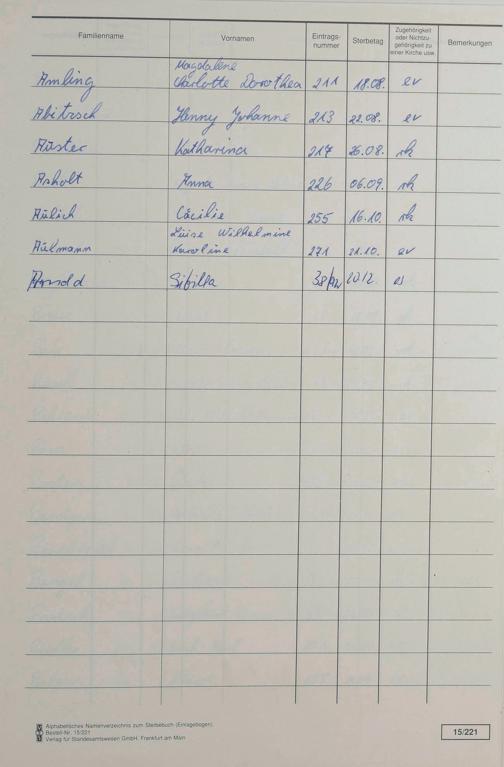 Familienname Vornamen Eintrags-nummer Sterbetag Zugehörigkeit oder Nichtzu-gehörigkeit zu einer Kirche usw. Bemerkungen
Magdalene
Amling Charlotte Dorothea 211 18.08. ev
Abitzsch Henny Johanne 213 22.08. ev
Aüster Katharina 217 26.08. rk
Asholt Anna 226 06.09. rk
Aülich Cäcilie 255 16.10. rk
Luise Wilhelmine
Aükmann Karoline 271 21.10. ev
Arnold Sibilla 2012. ev
Alphabetisches Namenverzeichnis zum Sterbebuch (Einlagebogen).
Bestell-Nr. 15/221
Verlag für Standesamtswesen GmbH, Frankfurt am Main
15/221